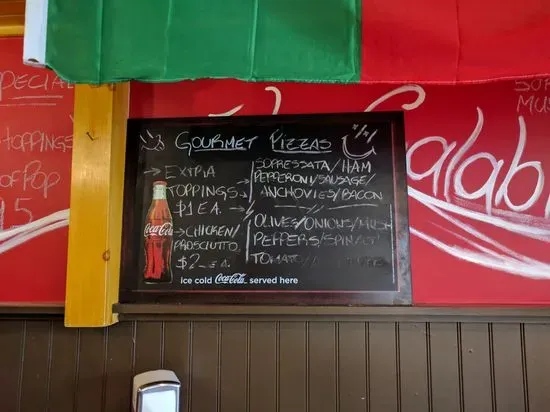 SPECIAL
TOPPINGS
OF POP
15
GOURMET PIZZAS
→ EXTRA
TOPPINGS →
$1 EA. →
→ CHICKEN/
PROSCIUTTO
$2 EA.
SOPRESSATA/HAM
PEPPERONI/SAUSAGE/
ANCHOVIES/BACON
OLIVES/ONIONS/MUSH
PEPPERS/SPINACH
Coca-Cola
ice cold Coca-Cola served here
alab
SOP
MUS